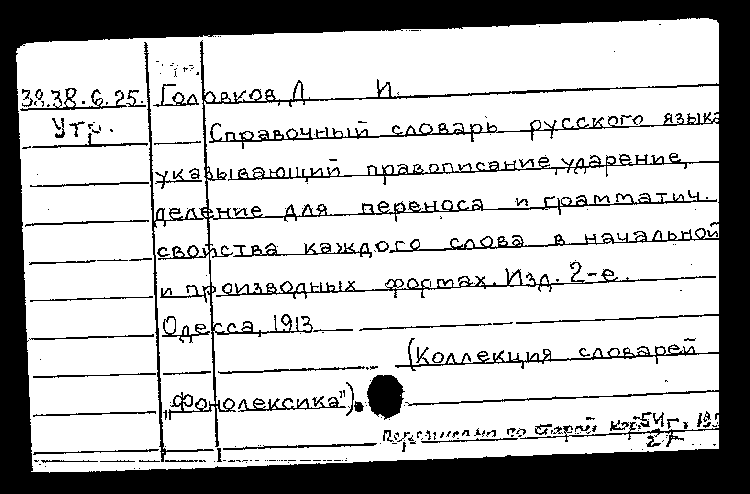 38.38.6.25. Головков, Д. И.
Утр.
Справочный словарь русского языка
указывающий правописание, ударение,
деление для переноса и грамматич.
свойства каждого слова в начальной
и производных формах. Изд. 2-е.
Одесса, 1913
(Коллекция словарей
„Фонолексика").
по старой